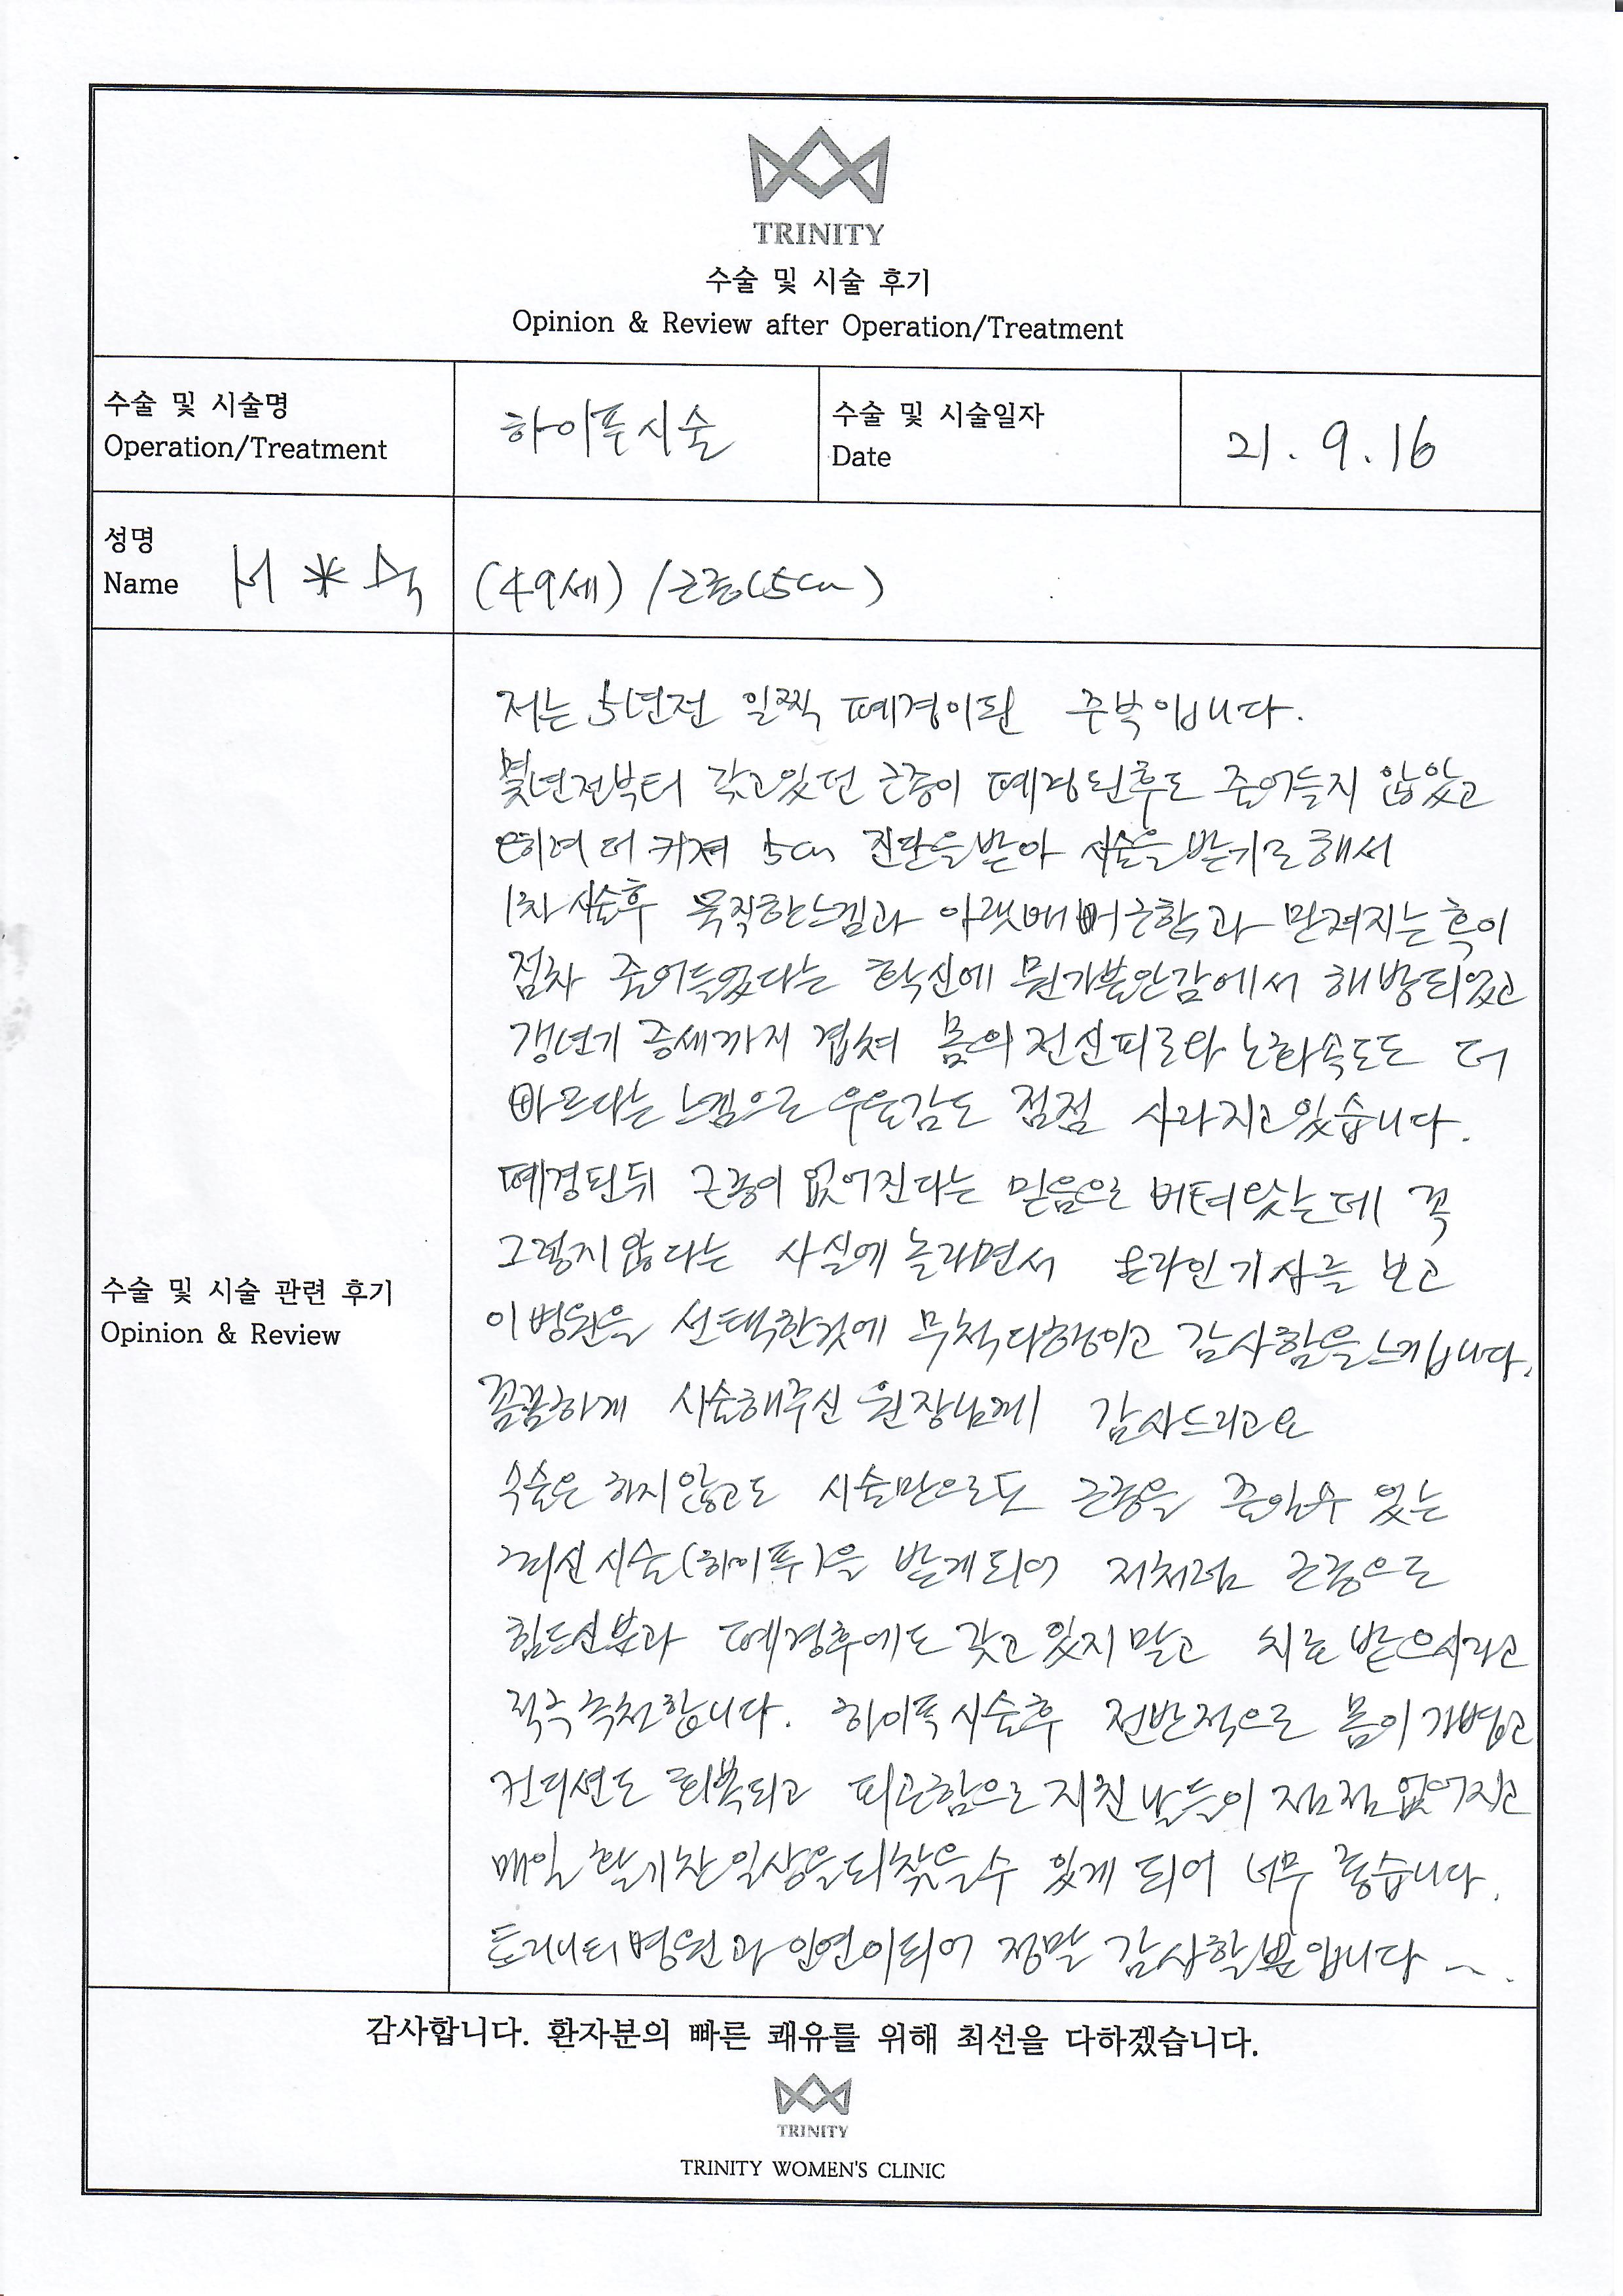 TRINITY
수술 및 시술 후기
Opinion & Review after Operation/Treatment
수술 및 시술명
Operation/Treatment
하이푸시술
수술 및 시술일자
Date
21. 9. 16
성명
Name
서 * 숙
(49세) / 근종(5cm)
수술 및 시술 관련 후기
Opinion & Review
저는 5년전 일찍 폐경이된 주부입니다.
몇년전부터 갖고있던 근종이 폐경된후도 줄어들지 않았고
더 커져 5cm 진단을받아 시술을받기로해서
1차시술후 묵직한느낌과 아랫배뻐근함과 만져지는혹이
점차 줄어들었다는 확신에 뭔가불안감에서 해방되었고
갱년기 증세까지 겹쳐 몸의 전신피로와 노화속도도 더
빠르다는 느낌으로 우울감도 점점 사라지고있습니다.
폐경된뒤 근종이 없어진다는 믿음으로 버텨왔는데 꼭
그렇지않다는 사실에 놀라면서 온라인기사를 보고
이병원을 선택한것에 무척다행이고 감사함을느낍니다.
꼼꼼하게 시술해주신 원장님께 감사드리고요
수술은 하지않고도 시술만으로도 근종을 줄일수 있는
최신시술(하이푸)을 받게되어 저처럼 근종으로
힘드신분과 폐경후에도 갖고있지말고 치료받으시라고
적극추천합니다. 하이푹시술후 전반적으로 몸이가볍고
컨디션도 회복되고 피곤함으로 지친날들이 점점없어지고
매일 활기찬일상을되찾을수 있게 되어 너무 좋습니다.
트리니티병원과 인연이되어 정말 감사할뿐입니다 ~.
감사합니다. 환자분의 빠른 쾌유를 위해 최선을 다하겠습니다.
TRINITY
TRINITY WOMEN'S CLINIC